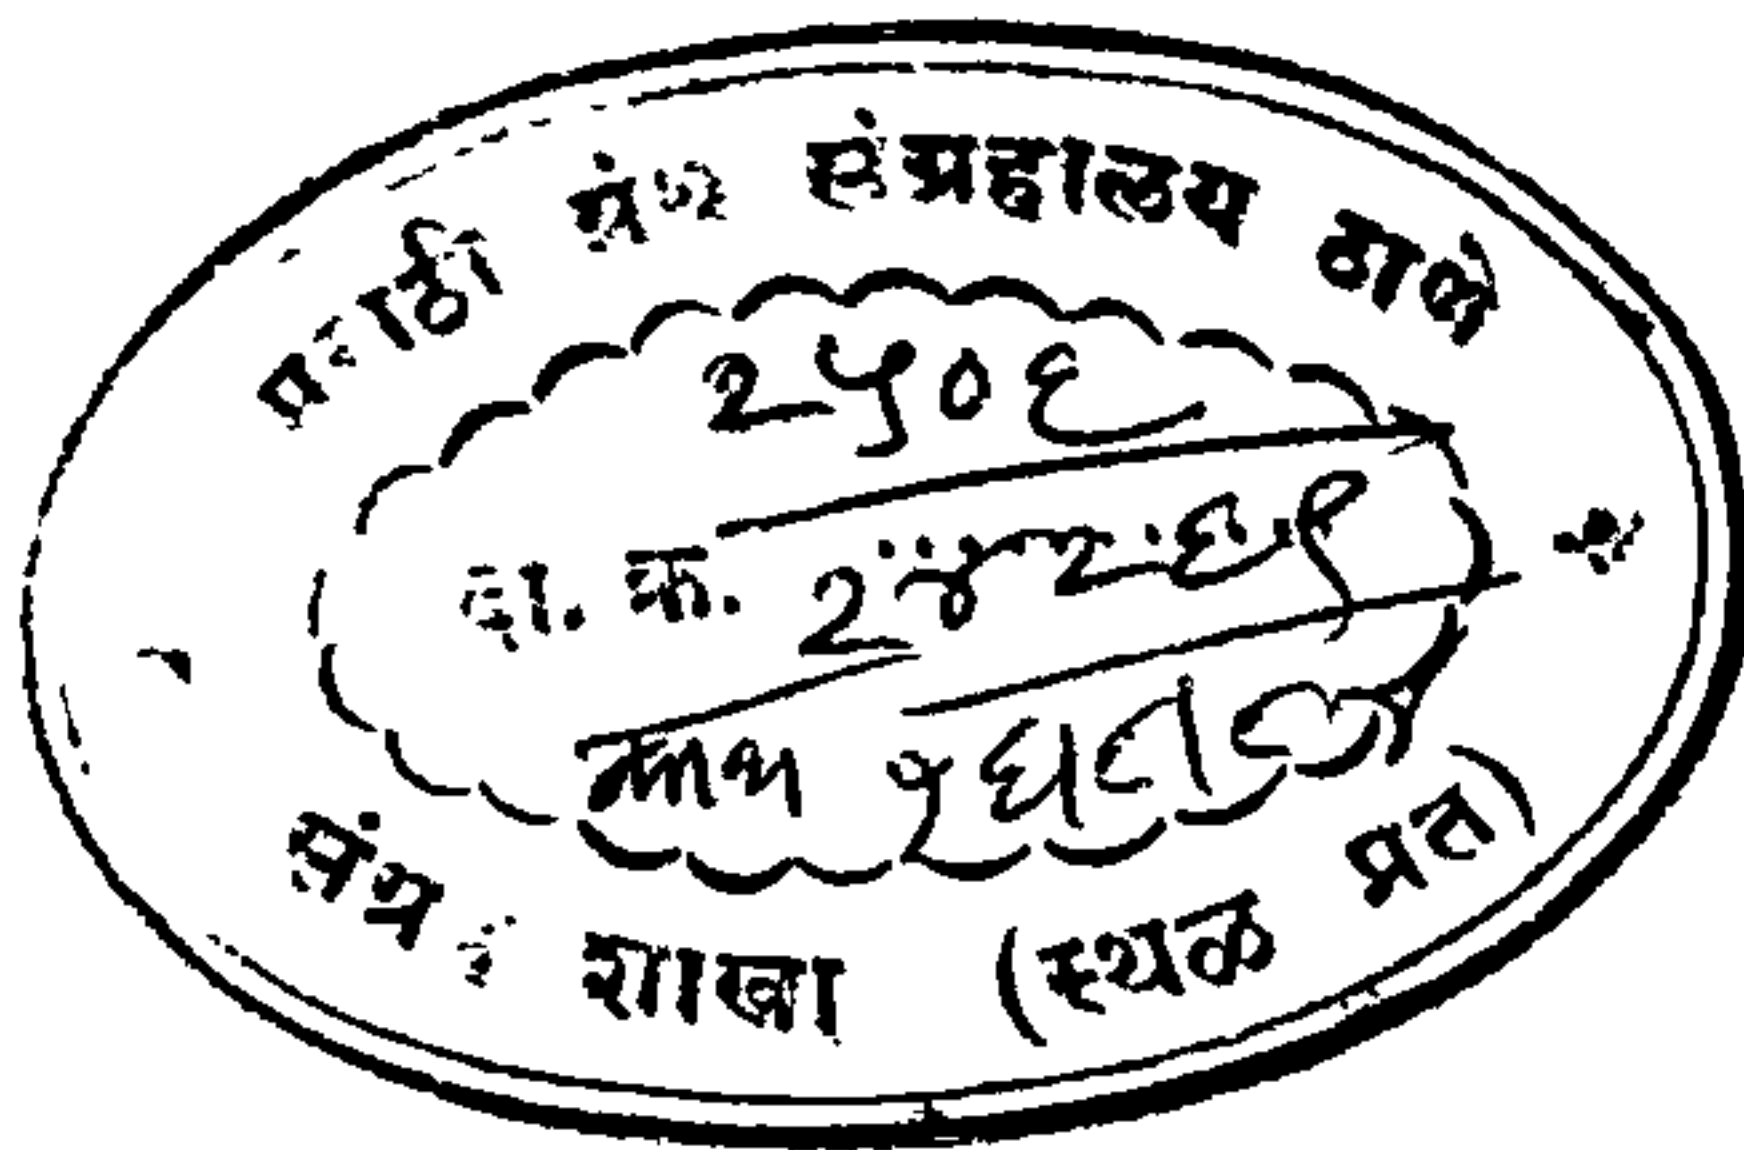 मराठी ग्रंथ संग्रहालय ठाणे
२५०६
दा. क्र. २४२६१
संग्रह शाखा (स्थळ प्रत)